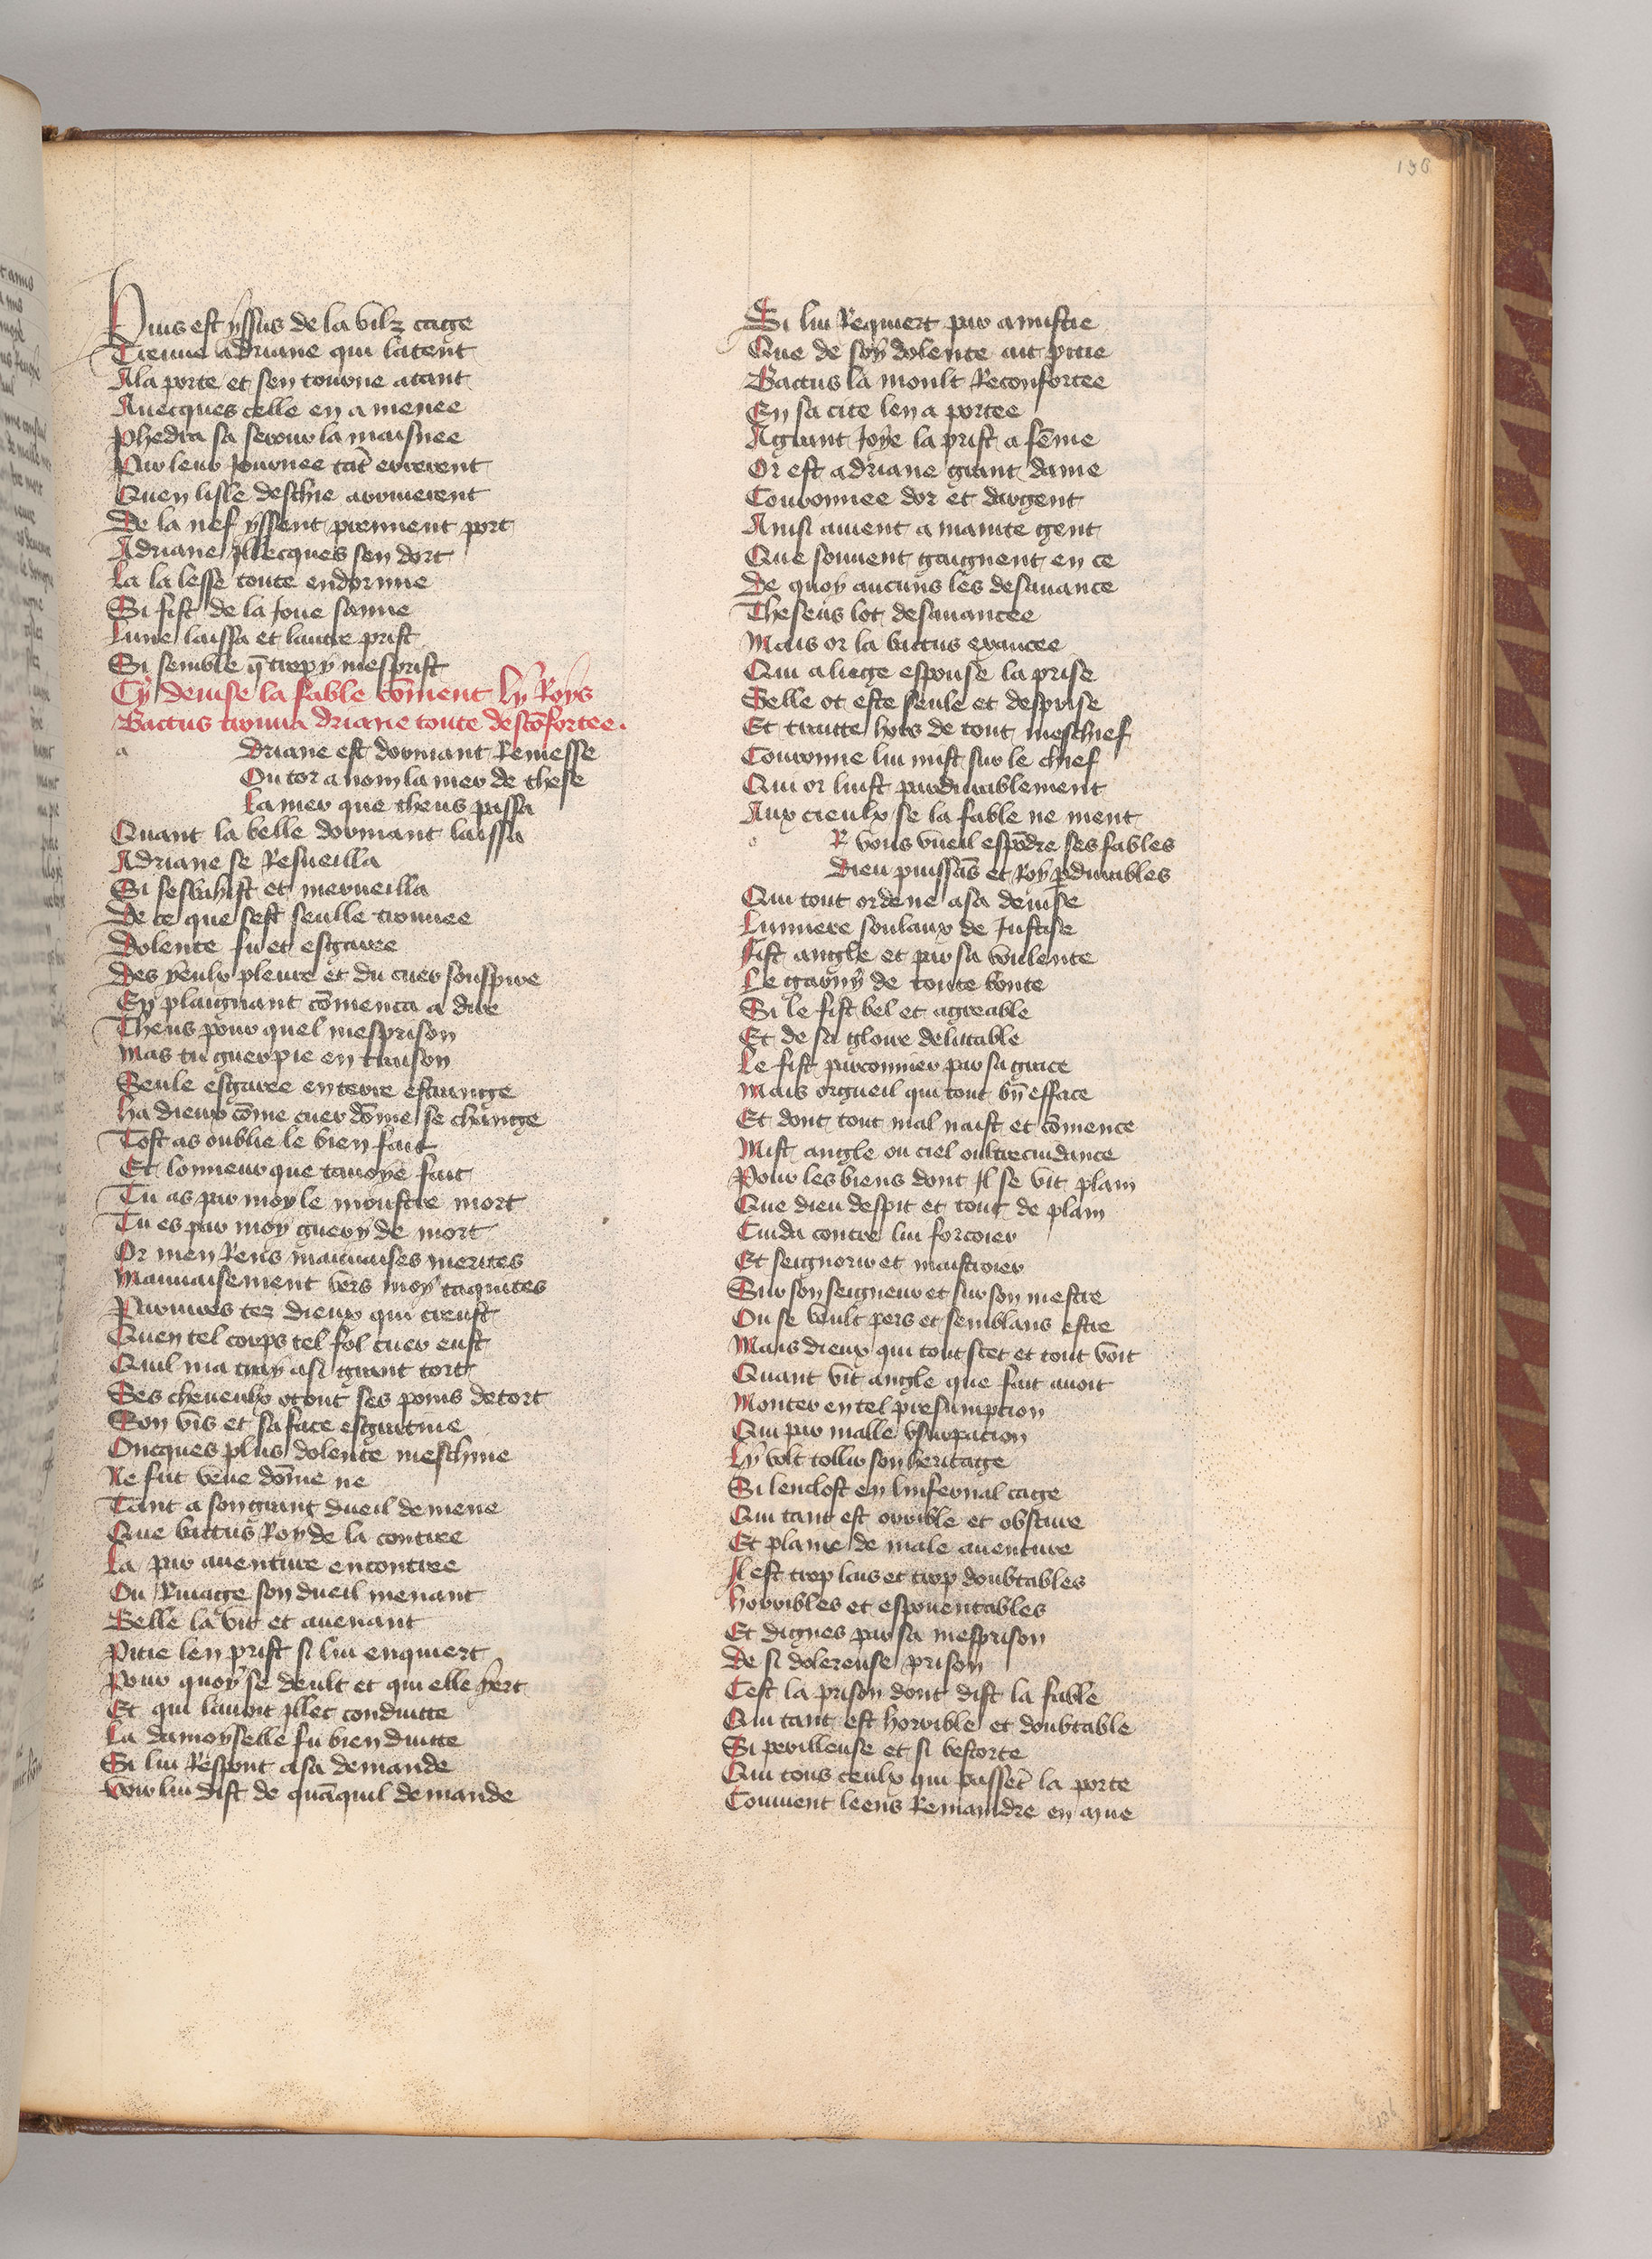 136
Puis est yssus de la vilz cage
Treuue adriane qui latent
Ala porte et sen tourne atant
Auecques celle en a menee
Phedra sa serour la maisnee
Par leur Journee tãt errerent
Quen lisle deschie arriuerent
De la nef yssent prennent port
Adriane Illecques sen dort
La la lesse toute endormie
Si fist de la Joue samie
Lune laissa et lautre prist
Si semble q̃ trop y mesprist
Cy deuise la fable cõment Ly Roys
Bactus trouua driane toute descõfortee.
a
Driane est dormant Remesse
Ou tor a nom la mer de these
La mer que theus passa
Quant la belle dormant laissa
Adriane se Resueilla
Si sesbahist et merueilla
De ce que sest seulle trouuee
Dolente fu et esgaree
Des yeulx pleure et du cuer souspire
En plaignant cõmenca a dire
Theus pour quel mesprison
Mas tu guerpie en traison
Seule esgaree en terre estrange
ha dieux cõme cuer dõme se change
Tost as oublie le bien fait
Et lonneur que tauoye fait
Tu as par moy le monstre mort
Tu es par moy guery de mort
Or men Rens mauuaises merites
Mauuaisement vers moy taquites
Pariures tez dieux qui creust
Quen tel corps tel fol cuer eust
Quil ma tray a si grant tort
Ses cheueulx ront ses poins detort
Son vis et sa face esgratine
Oncques plus dolente meschine
Ne fut veue dõme ne
Tant a son grant dueil demene
Que bactus Roy de la contree
La par auenture encontree
Ou Riuage son dueil menant
Belle la vit et auenant
Pitie len prist si lui enquiert
Pour quoy se deult et qui elle yert
Et qui lauoit Illec conduitte
La damoyselle fu bien duitte
Si lui Respont a sa demande
Voir lui dist de quãquil demande
Si lui Requiert par amistie
Que de soy dolente ait pitie
Bactus la moult Reconfortee
En sa cite len a portee
A grant Joye la prist a fẽme
Or est adriane grant dame
Couronnee dor et dargent
Ainsi auient a mainte gent
Que souuent gaignent en ce
De quoy aucuns les desauance
Theseus lot desauancee
Mais or la bactus exaucee
Qui a liege espouse la prise
Celle ot este seule et desprise
Et traitte hors de tout meschief
Couronne lui mist sur le chief
Qui or luist pardurablement
Aux cieulx se la fable ne ment
o
R vous vueil espõdre ses fables
Dieu puissãs et Roy p̱durables
Qui tout ordene a sa deuise
Lumiere soulaux de Justise
Fist angle et par sa voulente
Le garny de toute bonte
Si le fist bel et agreable
Et de sa gloire delitable
Le fist parconnier par sa grace
Mais orgueil qui tout bñ efface
Et dont tout mal naist et cõmence
Mist angle ou ciel oultrecuidance
Pour les biens dont Il se vit plain
Que dieu despit et tout de plain
Cuida contre lui forcoier
Et seignorir et maistroier
Sur son seigneur et sur son mestre
Ou se voult pers et semblans estre
Mais dieux qui tout scet et tout voit
Quant vit angle que fait auoit
Monter en tel presumpcion
Qui par malle vsurpacion
Ly volt tollir son heritage
Si lenclost en linfernal cage
Qui tant est orrible et obscure
Et plaine de male auenture
Il est trop lais et trop doubtables
horribles et espouentables
Et dignes par sa mesprison
De si dolereuse prison
Cest la prison dont dist la fable
Qui tant est horrible et doubtable
Si perilleuse et si bestorte
Qui tous ceulx qui passẽt la porte
Conuient leens Remaindre en ayue